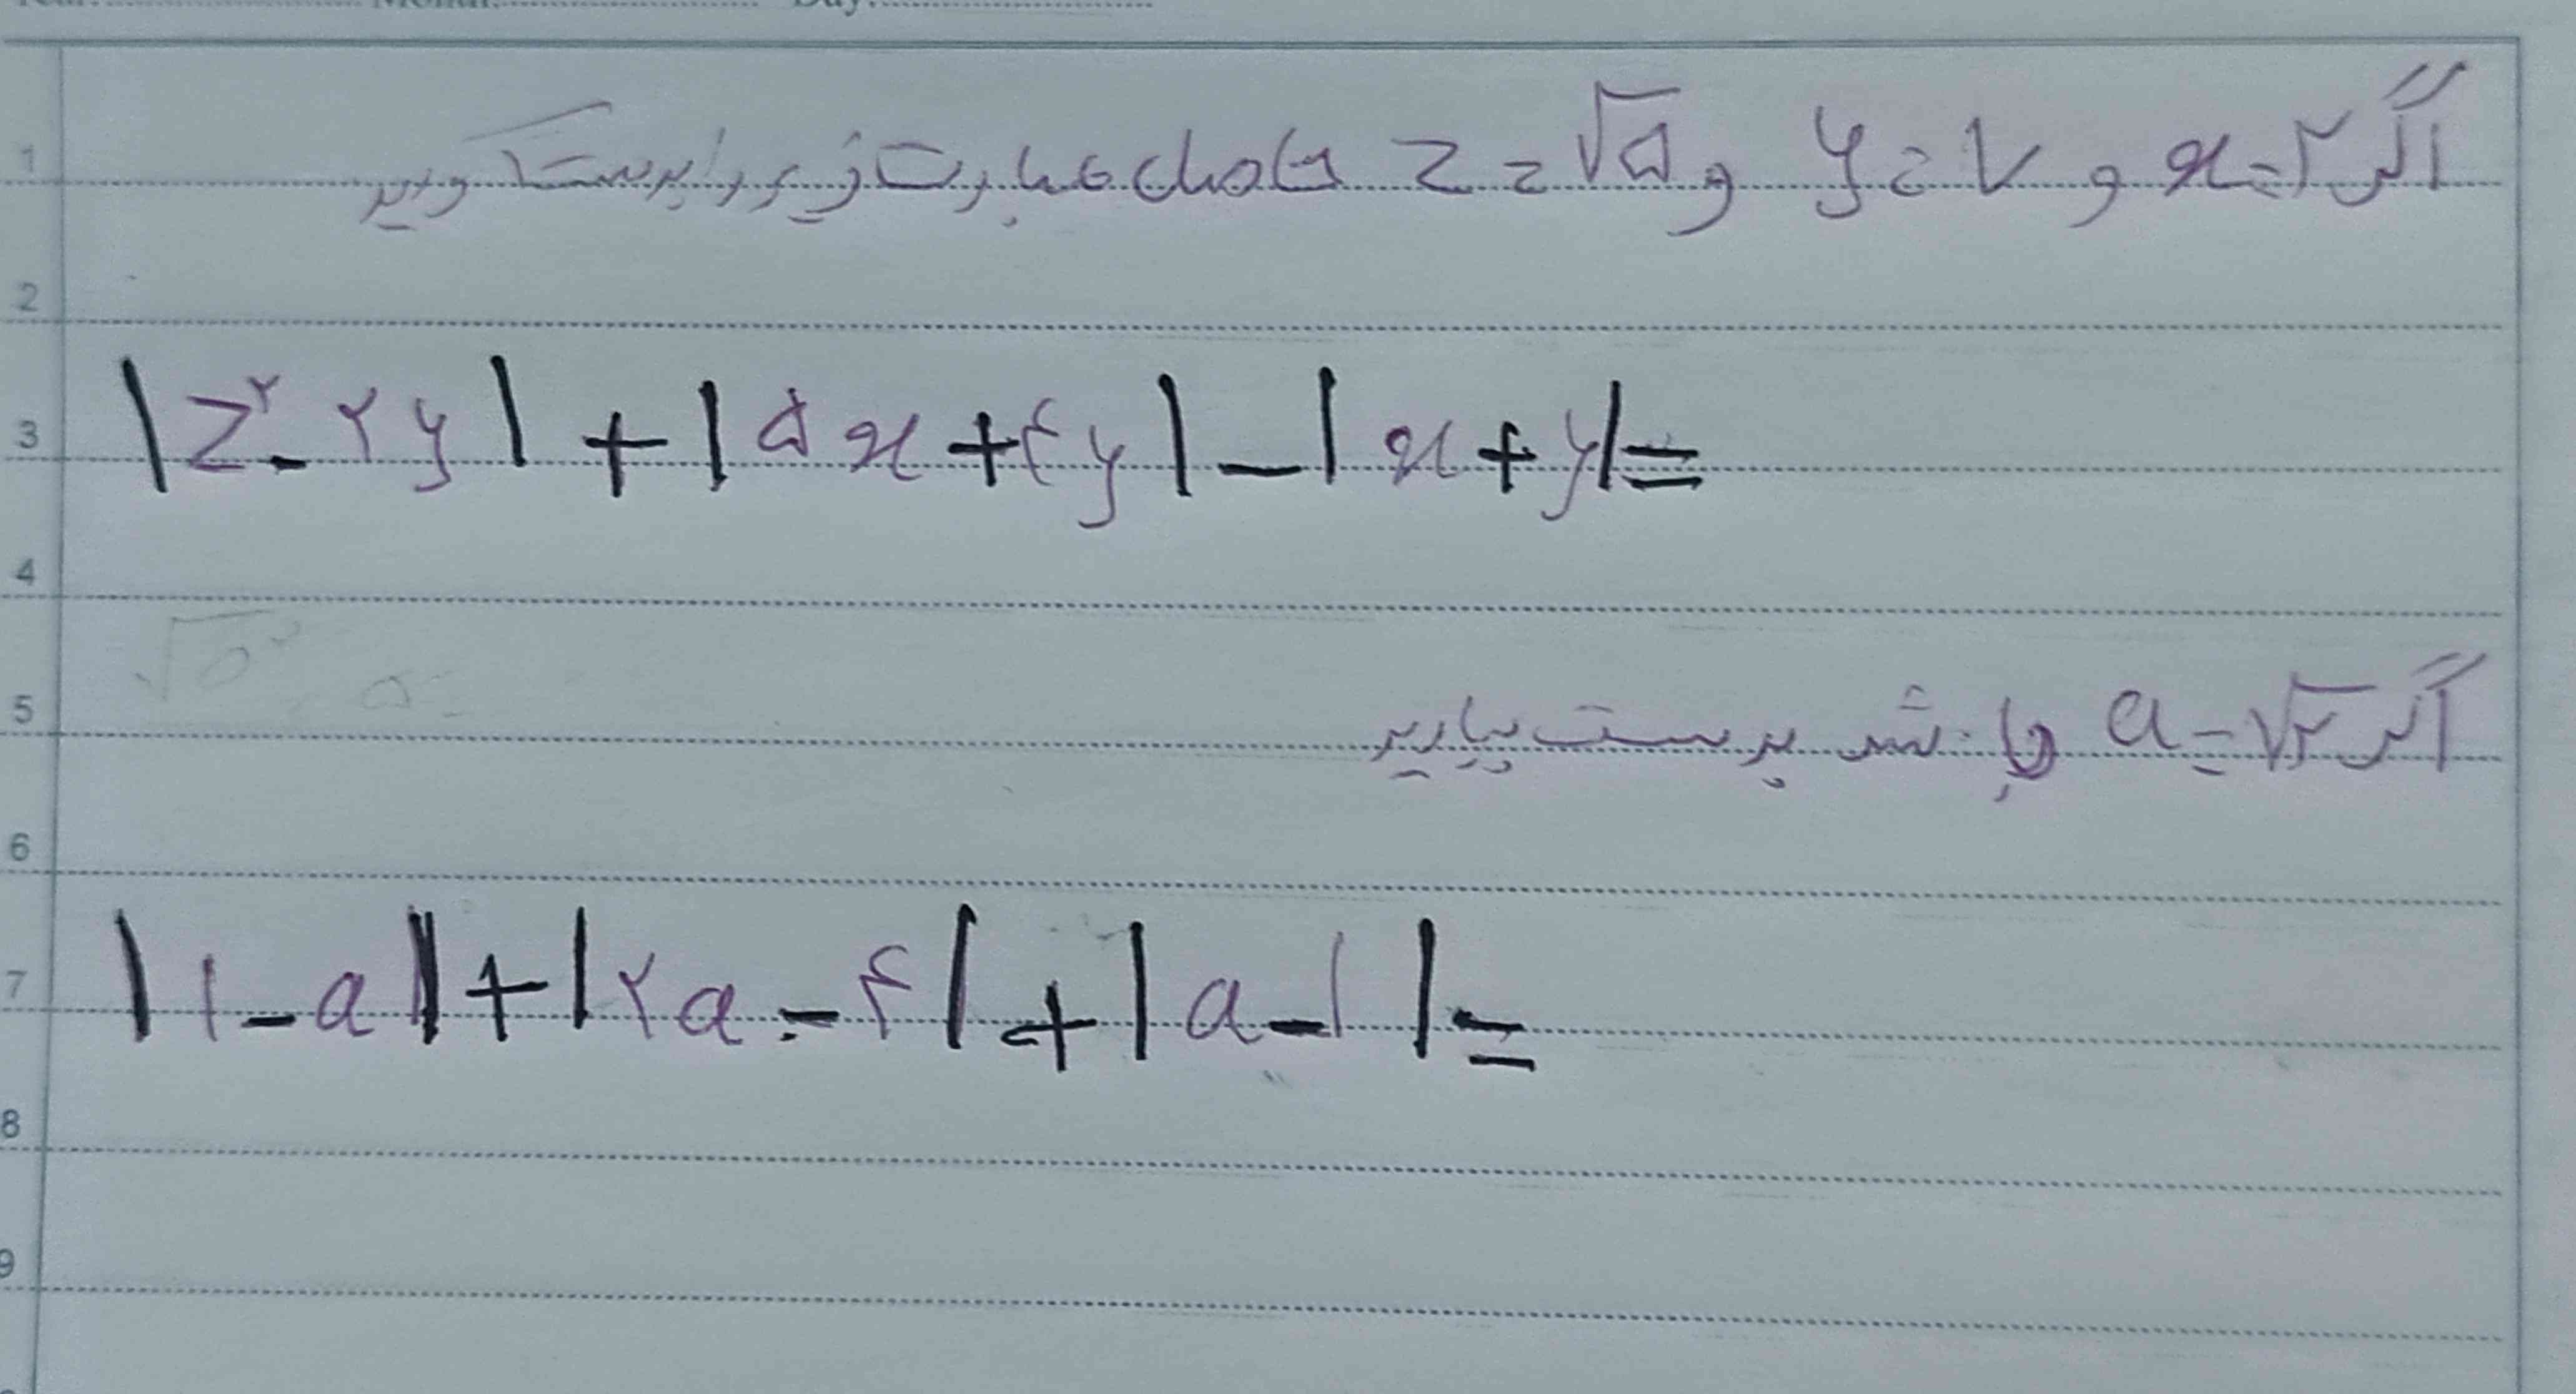 Year: Month: Day:
اگر x=۲ و y=۷ و z=√۵ حاصل عبارت زیر را بدست آورید
|z²-۲y|+|۵x+۴y|-|x+y|=
√۵² = ۵
اگر a=√۲ باشد بدست بیارید
|۱-a|+|۲a-۴|+|a-۱|=
1
2
3
4
5
6
7
8
9